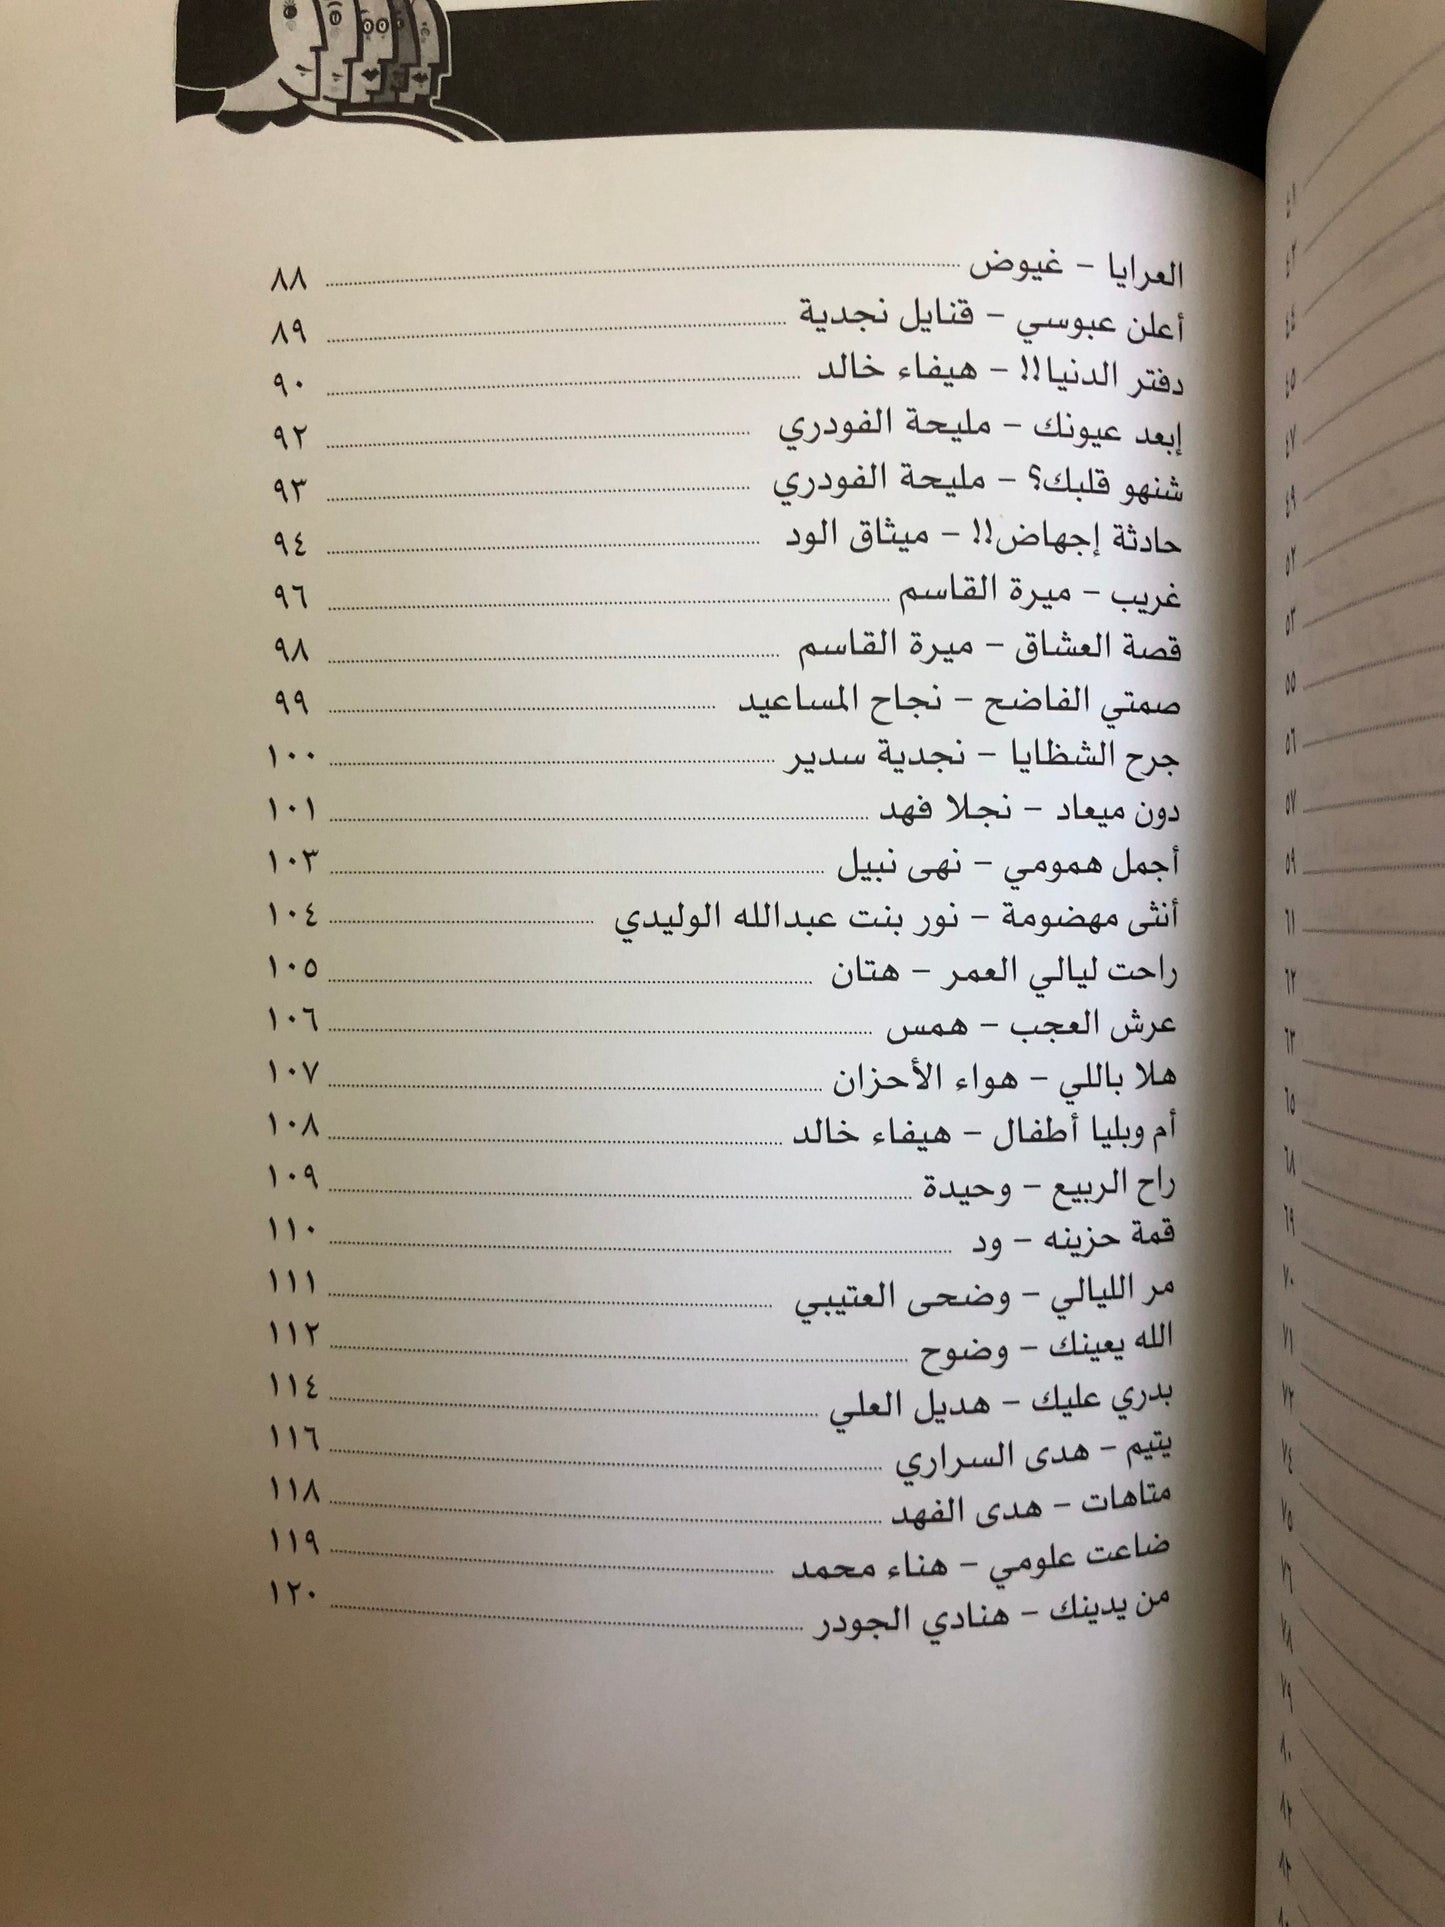 العرايا – غيوض ٨٨
أعلن عبوسي – قنايل نجدية ٨٩
دفتر الدنيا!! – هيفاء خالد ٩٠
إبعد عيونك – مليحة الفودري ٩٢
شنهو قلبك؟ – مليحة الفودري ٩٣
حادثة إجهاض!! – ميثاق الود ٩٤
غريب – ميرة القاسم ٩٦
قصة العشاق – ميرة القاسم ٩٨
صمتي الفاضح – نجاح المساعيد ٩٩
جرح الشظايا – نجدية سدير ١٠٠
دون ميعاد – نجلا فهد ١٠١
أجمل همومي – نهى نبيل ١٠٣
أنثى مهضومة – نور بنت عبدالله الوليدي ١٠٤
راحت ليالي العمر – هتان ١٠٥
عرش العجب – همس ١٠٦
هلا باللي – هواء الأحزان ١٠٧
أم وبليا أطفال – هيفاء خالد ١٠٨
راح الربيع – وحيدة ١٠٩
قمة حزينه – ود ١١٠
مر الليالي – وضحى العتيبي ١١١
الله يعينك – وضوح ١١٢
بدري عليك – هديل العلي ١١٤
يتيم – هدى السراري ١١٦
متاهات – هدى الفهد ١١٨
ضاعت علومي – هناء محمد ١١٩
من يدينك – هنادي الجودر ١٢٠
٤١
٤٢
٤٤
٤٥
٤٧
٤٩
٥٢
٥٣
٥٥
٥٦
٥٧
٥٩
٦١
٦٢
٦٣
٦٥
٦٨
٦٩
٧٠
٧١
٧٢
٧٤
٧٥
٧٦
٧٨
٧٩
٨٠
٨٢